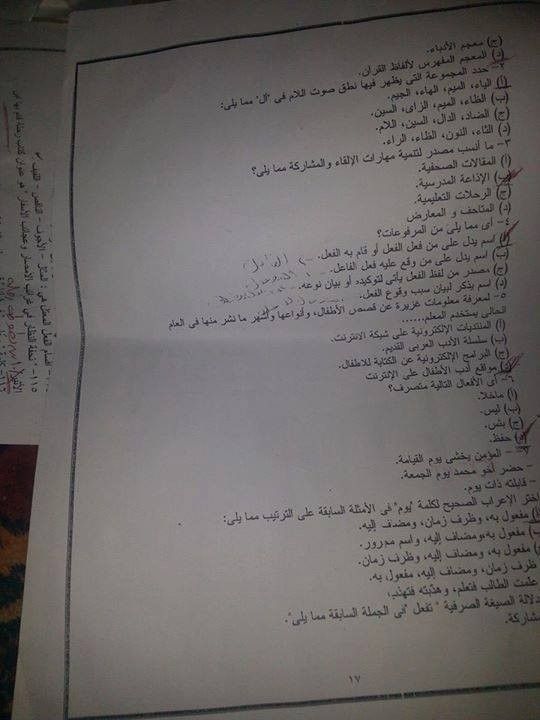 (ج) معجم الأدباء.
(د) المعجم المفهرس لألفاظ القرآن.
٢- حدد المجموعة التي يظهر فيها نطق صوت اللام في "ال" مما يلى:
(أ) الياء، الميم، الهاء، الجيم.
(ب) الظاء، الميم، الزاى، السين.
(ج) الضاد، الدال، السين، اللام.
(د) الثاء، النون، الظاء، الراء.
٣- ما أنسب مصدر لتنمية مهارات الإلقاء والمشاركة مما يلى؟
(أ) المقالات الصحفية.
(ب) الإذاعة المدرسية.
(ج) الرحلات التعليمية.
(د) المتاحف و المعارض
٤- أى مما يلى من المرفوعات؟
(أ) اسم يدل على من فعل الفعل أو قام به الفعل.
(ب) اسم يدل على من وقع عليه فعل الفاعل.
(ج) مصدر من لفظ الفعل يأتى لتوكيده أو بيان نوعه.
(د) اسم يذكر لبيان سبب وقوع الفعل.
٥- لمعرفة معلومات غزيرة عن قصص الأطفال، وأنواعها وأشهر ما نشر منها في العام
الحالى يستخدم المعلم......
(أ) المنتديات الإلكترونية على شبكة الانترنت.
(ب) سلسلة الأدب العربى القديم.
(ج) البرامج الإلكترونية عن الكتابة للأطفال.
(د) مواقع أدب الأطفال على الإنترنت
٦- أى الأفعال التالية متصرف؟
(أ) ماخلا.
(ب) ليس.
(ج) بئس.
(د) حفظ.
٧- - المؤمن يخشى يوم القيامة.
- حضر أخو محمد يوم الجمعة.
- قابلته ذات يوم.
اختر الإعراب الصحيح لكلمة "يوم" فى الأمثلة السابقة على الترتيب مما يلى:
مفعول به، وظرف زمان، ومضاف إليه.
مفعول به، ومضاف إليه، واسم مجرور.
مفعول به، ومضاف إليه، وظرف زمان.
ظرف زمان، ومضاف إليه، مفعول به.
علمت الطالب فتعلم، وهذبته فتهذب،
دلالة الصيغة الصرفية "تفعل" فى الجملة السابقة مما يلى".
مشاركة.
١٧